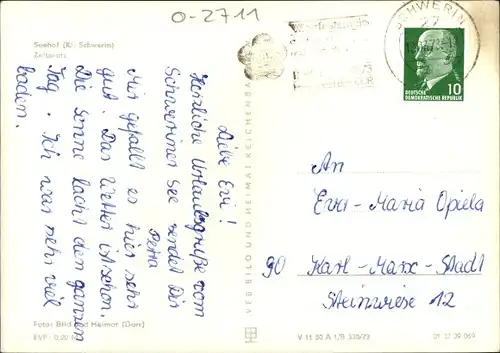 O-2711
Seehof (Kr. Schwerin)
Zeltplatz
Liebe Evi!
Herzliche Urlaubsgrüße vom
Schweriner See sendet Dir
Petra
Mir gefällt es hier sehr
gut. Das Wetter ist schön.
Die Sonne lacht den ganzen
Tag. Ich war sehr viel
baden.
Foto: Bild und Heimat (Darr)
EVP 0,20
VEB BILD UND HEIMAT REICHENBACH
SCHWERIN
27
DEUTSCHE
DEMOKRATISCHE REPUBLIK
10
An
Eva-Maria Opiela
90 Karl-Marx-Stadt
Steinwiese 12
V 11 50 A 1/B 330/73
01 13 09 069